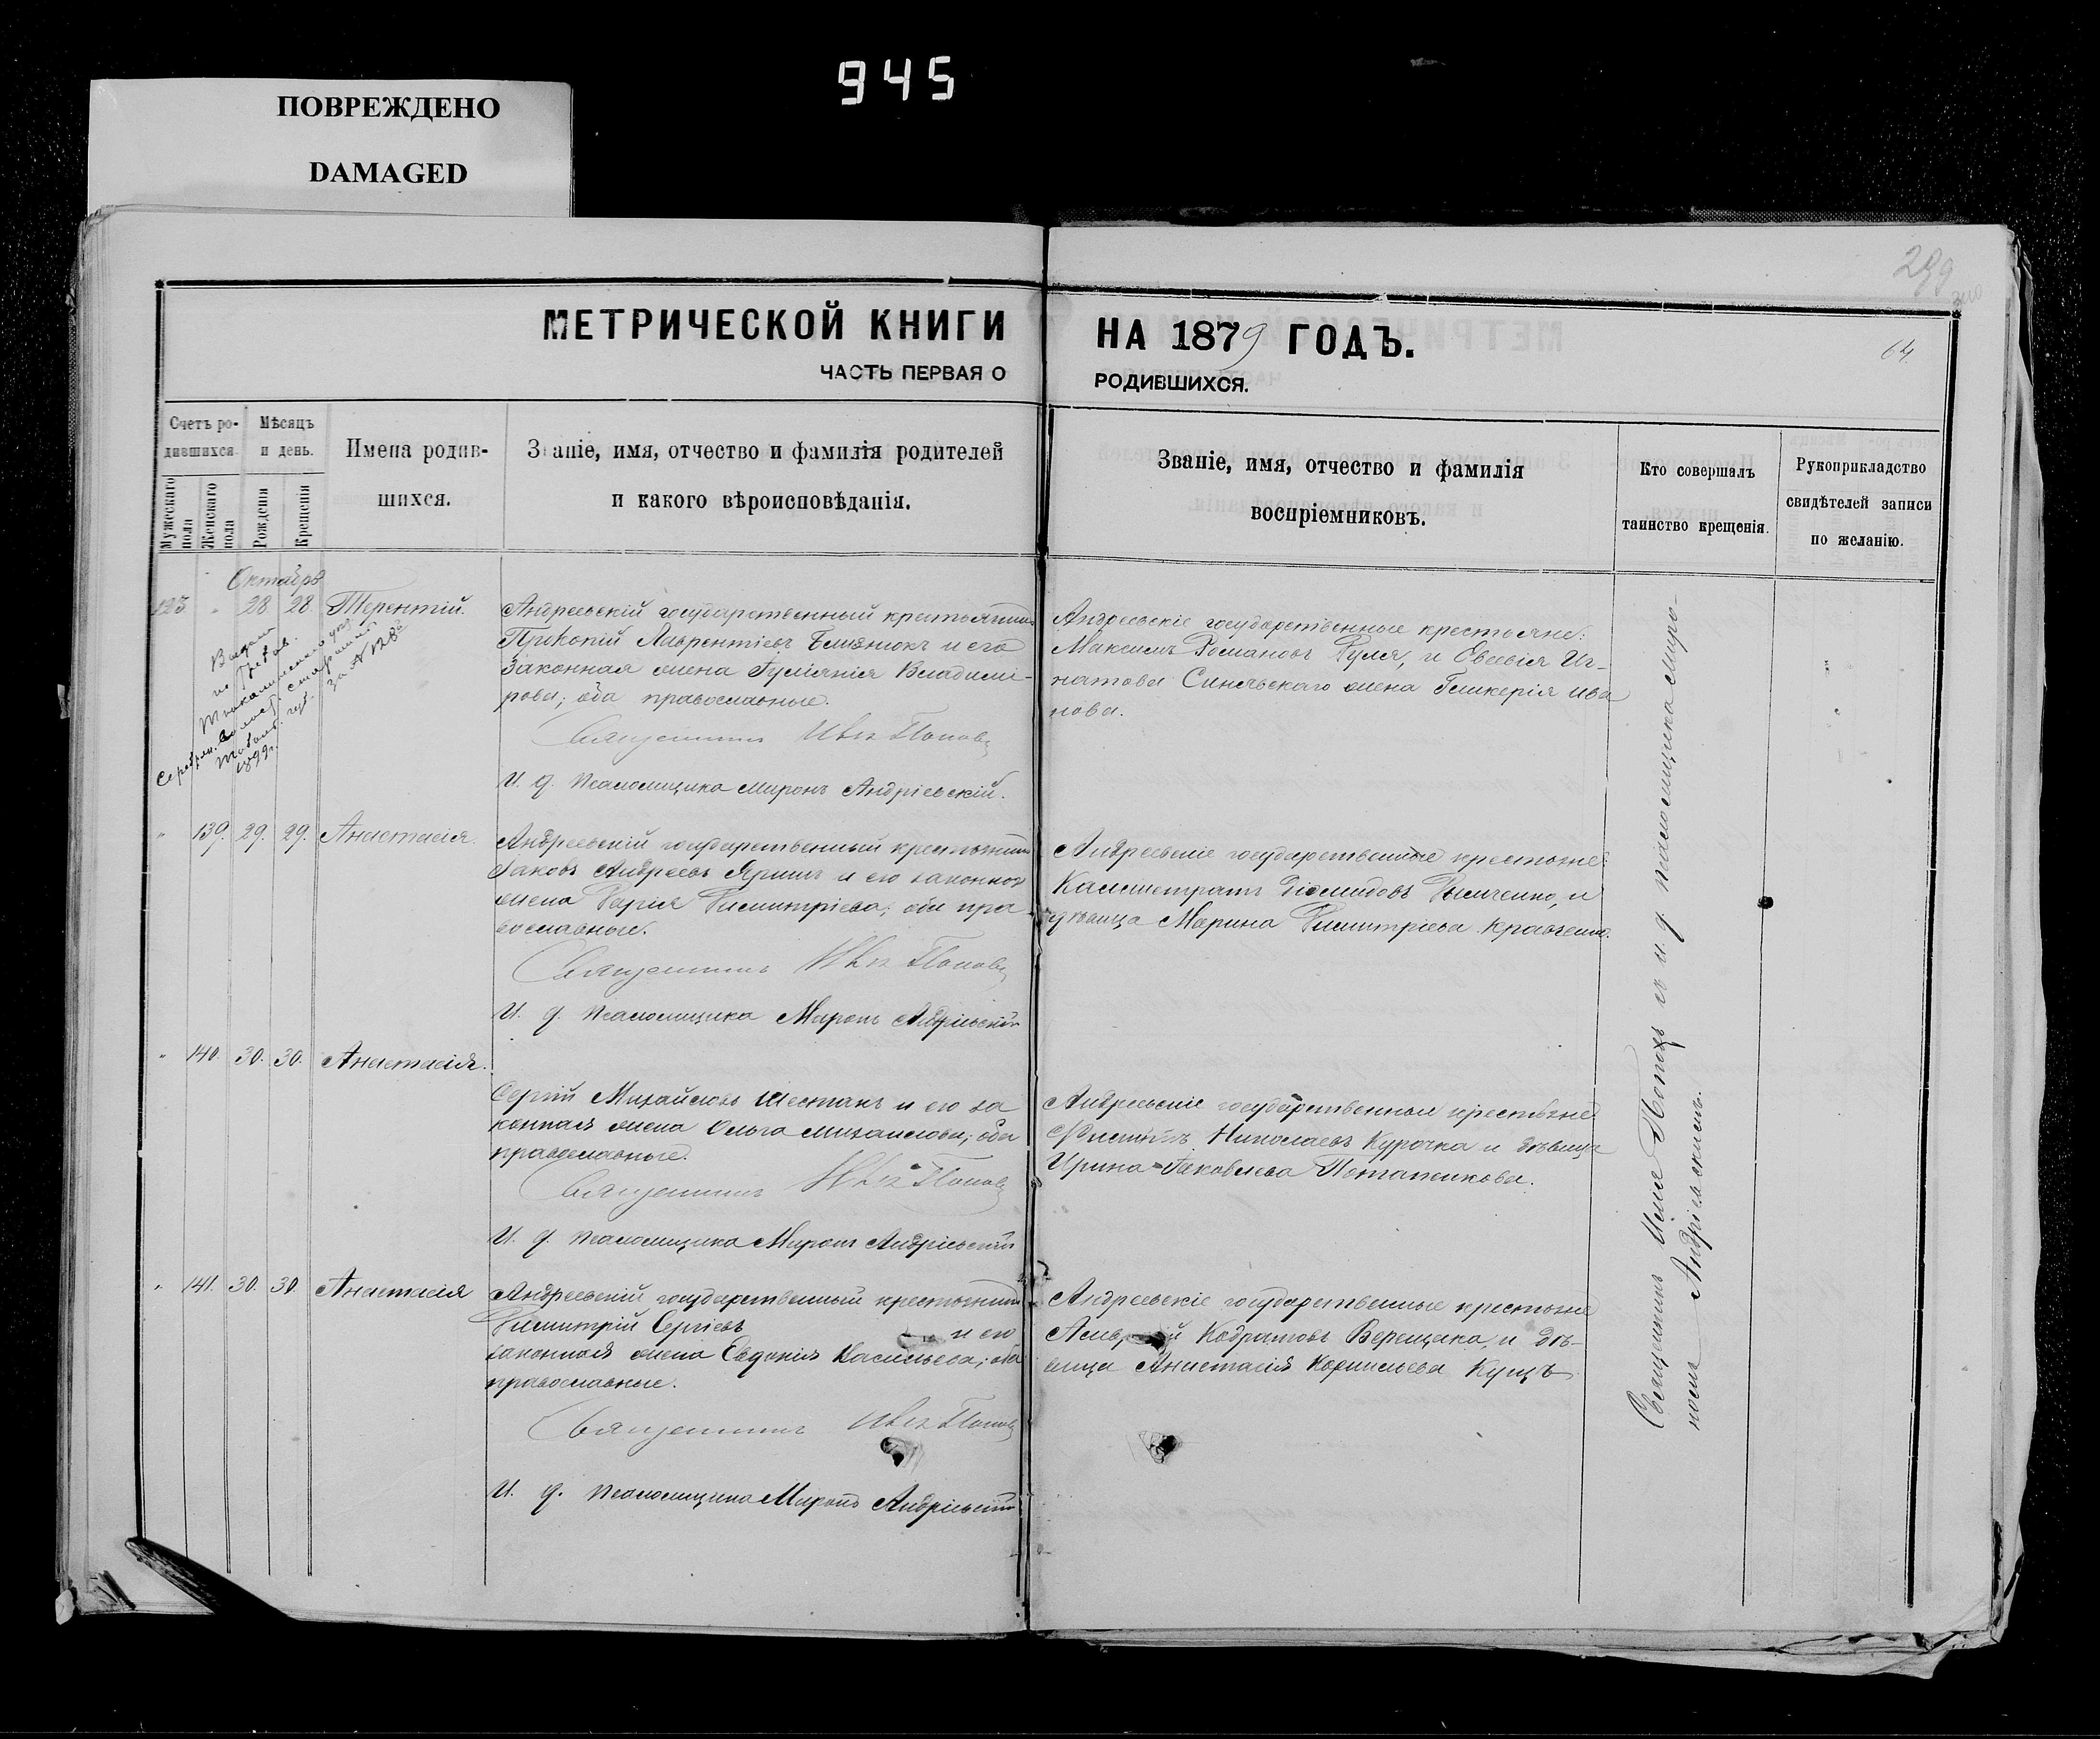 945
ПОВРЕЖДЕНО
DAMAGED
299
64.
МЕТРИЧЕСКОЙ КНИГИ НА 1879 ГОДЪ.
ЧАСТЬ ПЕРВАЯ О РОДИВШИХСЯ.
Счетъ ро-
дившихся.
Мужескаго пола
Женскаго пола
Мѣсяцъ
и день.
Рожденія
Крещенія
Имена родив-
шихся.
Званіе, имя, отчество и фамилія родителей
и какого вѣроисповѣданія.
Званіе, имя, отчество и фамилія
воспріемниковъ.
Кто совершалъ
таинство крещенія.
Рукоприкладство
свидѣтелей записи
по желанію.
Октябрь
123 " 28 28. Терентій.
1899г.
Андреевскій государственный крестьянинъ
Прокопій Лаврентіевъ и его
Законная жена Владимі-
рова; оба православные.
Священникъ Попов
И. д. псаломщика Миронъ Андріевскій.
Андреевскіе государственные крестьяне:
Максимъ Романовъ Руля, и Евсевія Иг-
натова Синявскаго жена Гликерія Ива
нова.
" 139. 29. 29. Анастасія.
Андреевскій государственный крестьянинъ
Іаковъ Андреевъ и его законная
жена Дарія Димитріева; оба пра-
вославные.
Священникъ Попов
И. д. псаломщика Миронъ Андріевскій
Андреевскіе государственные крестьяне:
Каллистратъ Діомидовъ и
дѣвица Марина Димитріева Кравченко.
" 140. 30. 30. Анастасія.
Сергій Михайловъ Шестакъ и его за
конная жена Ольга Михайлова; оба
православные.
Священникъ Попов
И. д. псаломщика Миронъ Андріевскій
Андреевскіе государственные крестьяне
Николаевъ Курочка и дѣвица
Ирина Іаковлева Потапенкова.
" 141. 30. 30. Анастасія
Андреевскій государственный крестьянинъ
Димитрій Сергіевъ и его
законная жена Евдокія Васильева; оба
православные.
Священникъ Попов
И. д. псаломщика Миронъ Андріевскій
Андреевскіе государственные крестьяне
Кодратовъ Верещака, и дѣ-
вица Анастасія Корнильева Куцъ
Священникъ съ и. д. псаломщика Миро-
номъ Андріевскимъ.